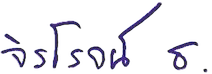 จิรโรจน์ ธ.